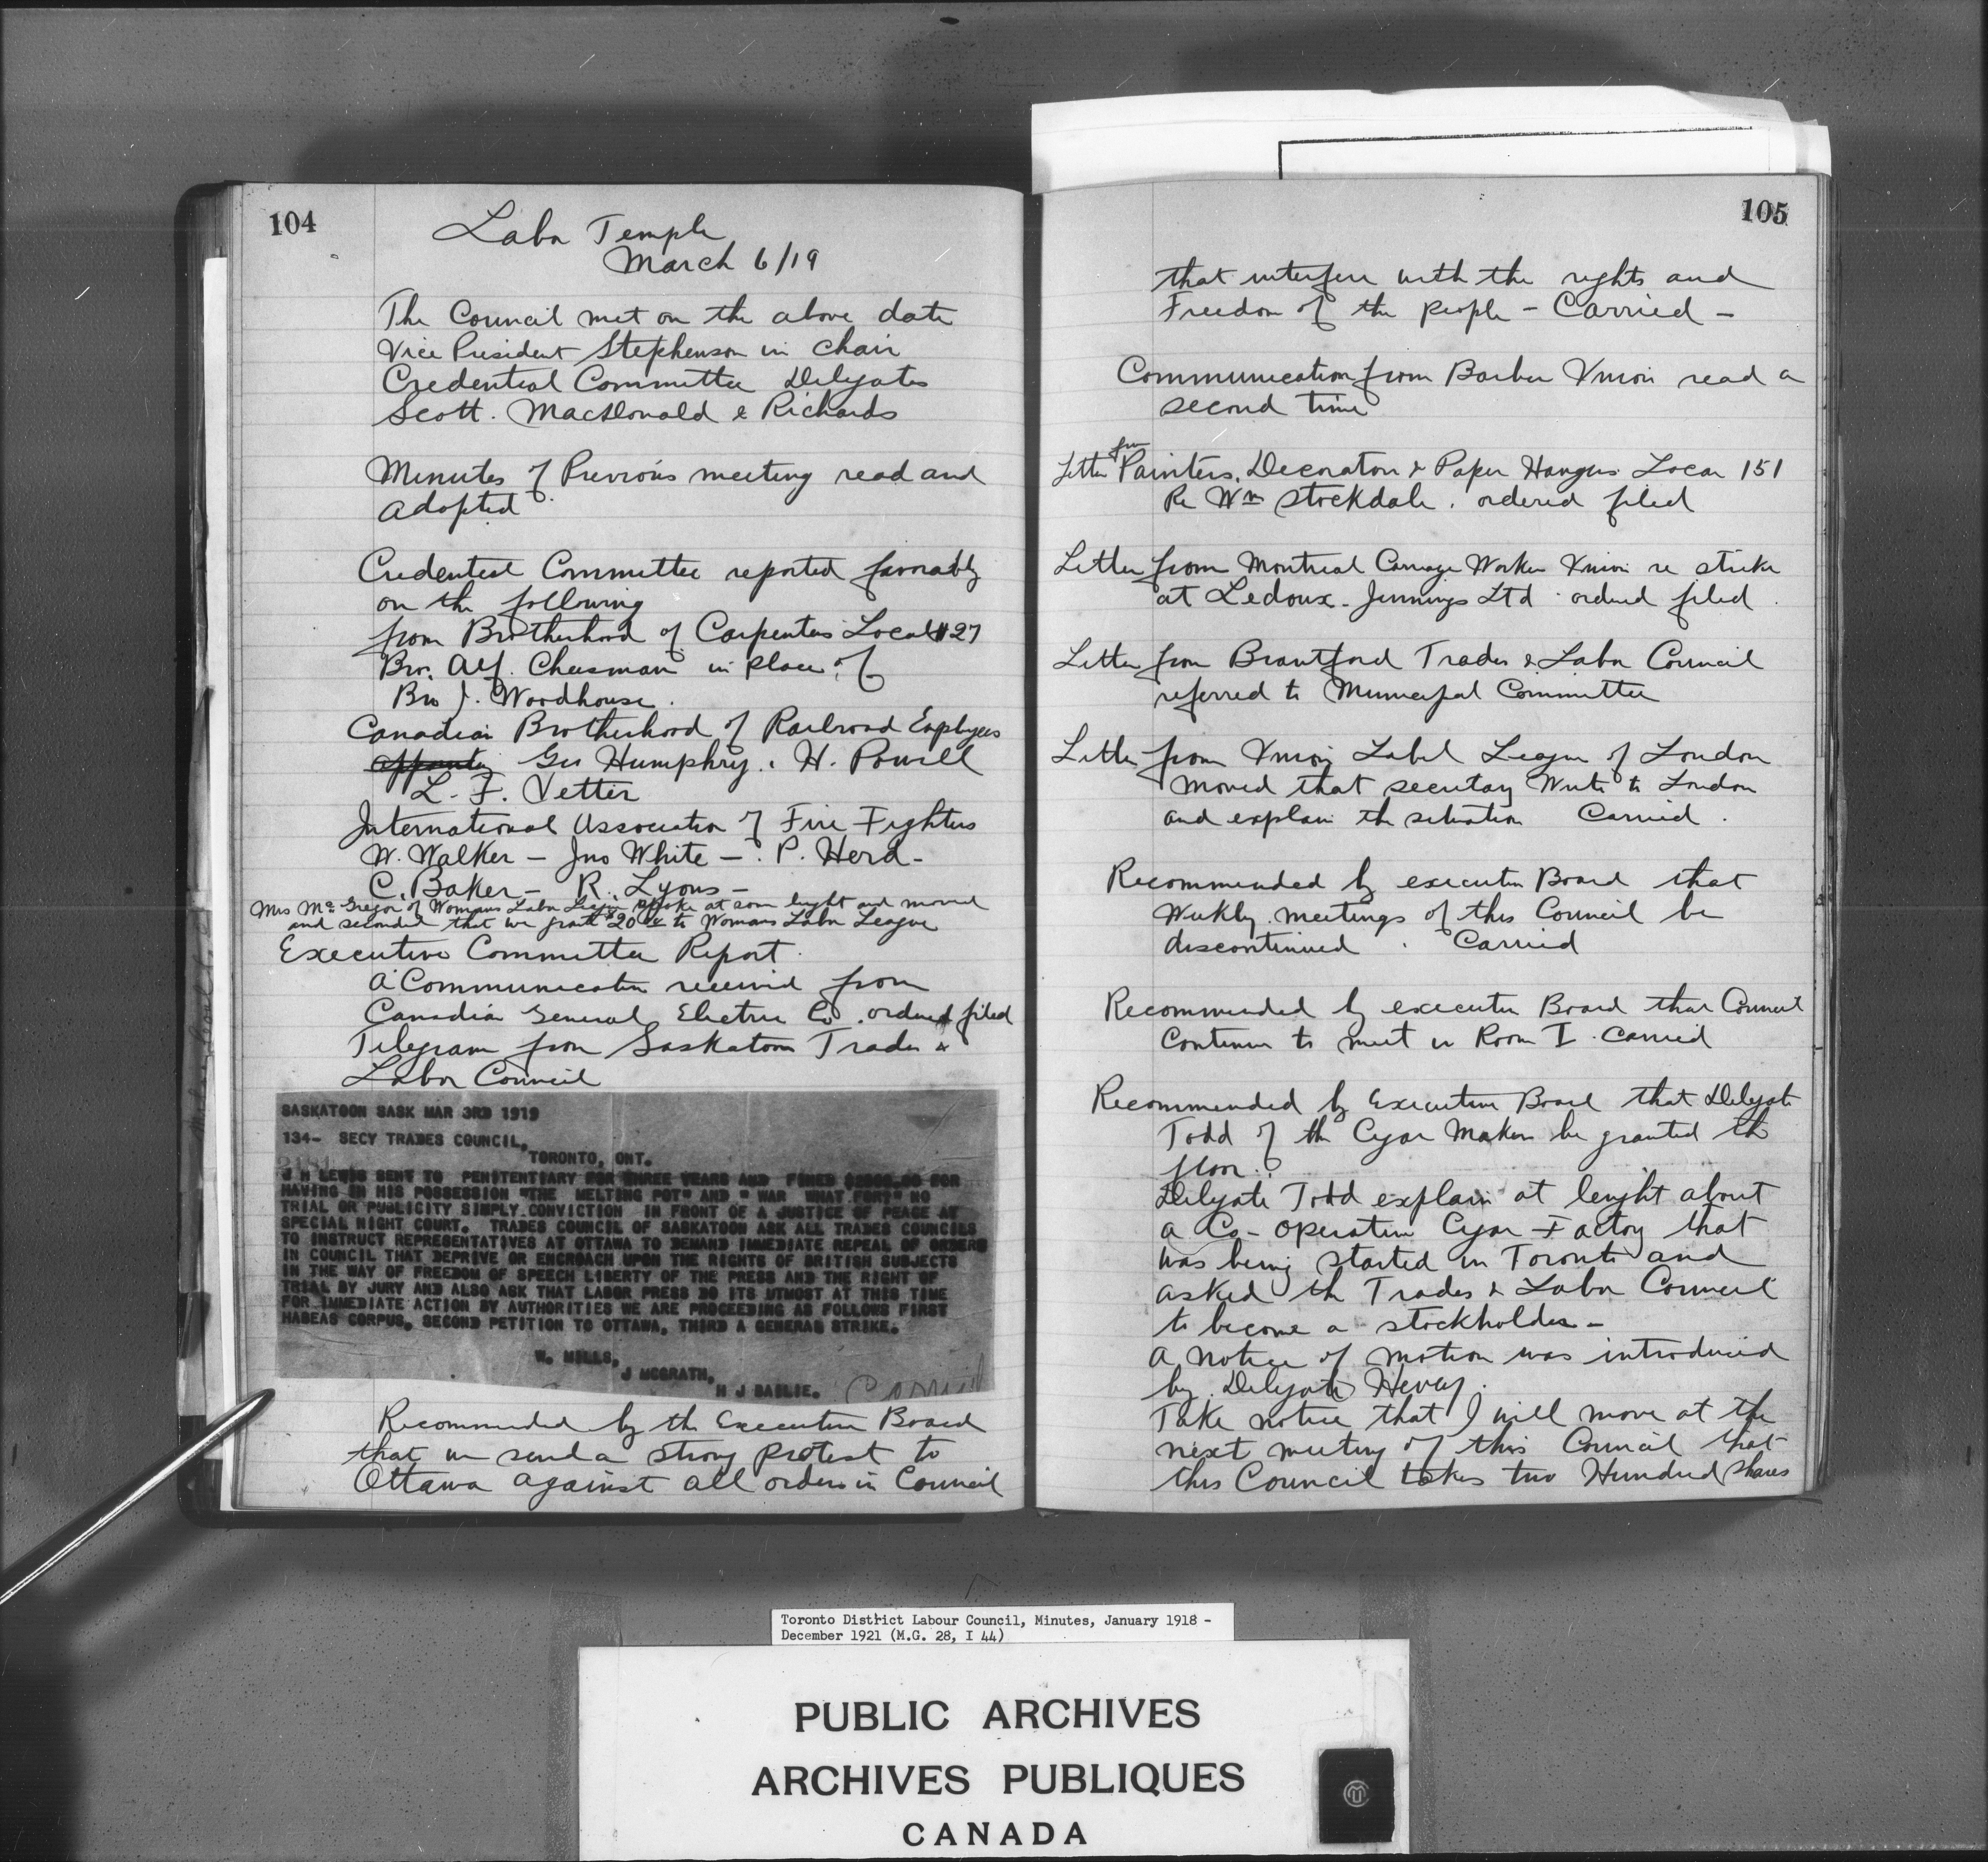 104
Labor Temple
March 6/19
The Council met on the above date
Vice President Stephenson in chair
Credential Committee Delegates
Scott. MacDonald & Richards
Minutes of Previous meeting read and
adopted
Credential Committee reported favorably
on the following
from Brotherhood of Carpenters Local #27
Bro. Alf. Cheesman in place of
Bro J. Woodhouse.
Canadian Brotherhood of Railroad Employees
Geo Humphry. H. Powell
L. F. Vetter
International Association of Fire Fighters
W. Walker – Jno White – P. Herd –
C. Baker – R. Lyons –
Mrs McGregor of Womans Labor League spoke at som lenght and moved
and seconded that we grant $20.00 to Womans Labor League
Executive Committee Report.
A Communication received from
Canadian General Electric Co. ordered filed
Telegram from Saskatoon Trades &
Labor Council
SASKATOON SASK MAR 3RD 1919
134- SECY TRADES COUNCIL,
TORONTO, ONT.
J H LEWIS SENT TO PENITENTIARY FOR THREE YEARS AND FINED FOR
HAVING IN HIS POSSESSION "THE MELTING POT" AND " WAR WHAT FOR?" NO
TRIAL OR PUBLICITY SIMPLY CONVICTION IN FRONT OF A JUSTICE OF PEACE AT
SPECIAL NIGHT COURT. TRADES COUNCIL OF SASKATOON ASK ALL TRADES COUNCILS
TO INSTRUCT REPRESENTATIVES AT OTTAWA TO DEMAND IMMEDIATE REPEAL OF ORDERS
IN COUNCIL THAT DEPRIVE OR ENCROACH UPON THE RIGHTS OF BRITISH SUBJECTS
IN THE WAY OF FREEDOM OF SPEECH LIBERTY OF THE PRESS AND THE RIGHT OF
TRIAL BY JURY AND ALSO ASK THAT LABOR PRESS DO ITS UTMOST AT THIS TIME
FOR IMMEDIATE ACTION BY AUTHORITIES WE ARE PROCEEDING AS FOLLOWS FIRST
HABEAS CORPUS, SECOND PETITION TO OTTAWA, THIRD A GENERAL STRIKE.
W. MILLS,
J MCGRATH,
H J BAILIE.
Recommended by the Executive Board
that we send a strong protest to
Ottawa against all orders in Council
105
that interfere with the rights and
Freedom of the people – Carried –
Communication from Barber Union read a
second time
Letter from Painters, Decorators & Paper Hangers Local 151
Re Wm Stockdale. ordered filed
Letter from Montreal Carriage Worker Union re strike
at Ledoux-Jennings Ltd ordered filed
Letter from Brantford Trades & Labor Council
referred to Municipal Committee
Letter from Union Label League of London
moved that secretary Write to London
and explain the situation Carried.
Recommended by executive Board that
Weekly meetings of this Council be
discontinued. Carried
Recommended by executive Board that Council
Continue to meet in Room I. Carried
Recommended by Executive Board that Delegate
Todd of the Cigar Makers be granted the
floor.
Delegate Todd explain at lenght about
a Co-operative Cigar Factory that
was being started in Toronto and
asked the Trades & Labor Council
to become a stockholder –
A notice of motion was introduced
by Delegate Hevey.
Take notice that I will move at the
next meeting of this Council that
this Council takes two Hundred shares
Toronto District Labour Council, Minutes, January 1918 -
December 1921 (M.G. 28, I 44)
PUBLIC ARCHIVES
ARCHIVES PUBLIQUES
CANADA